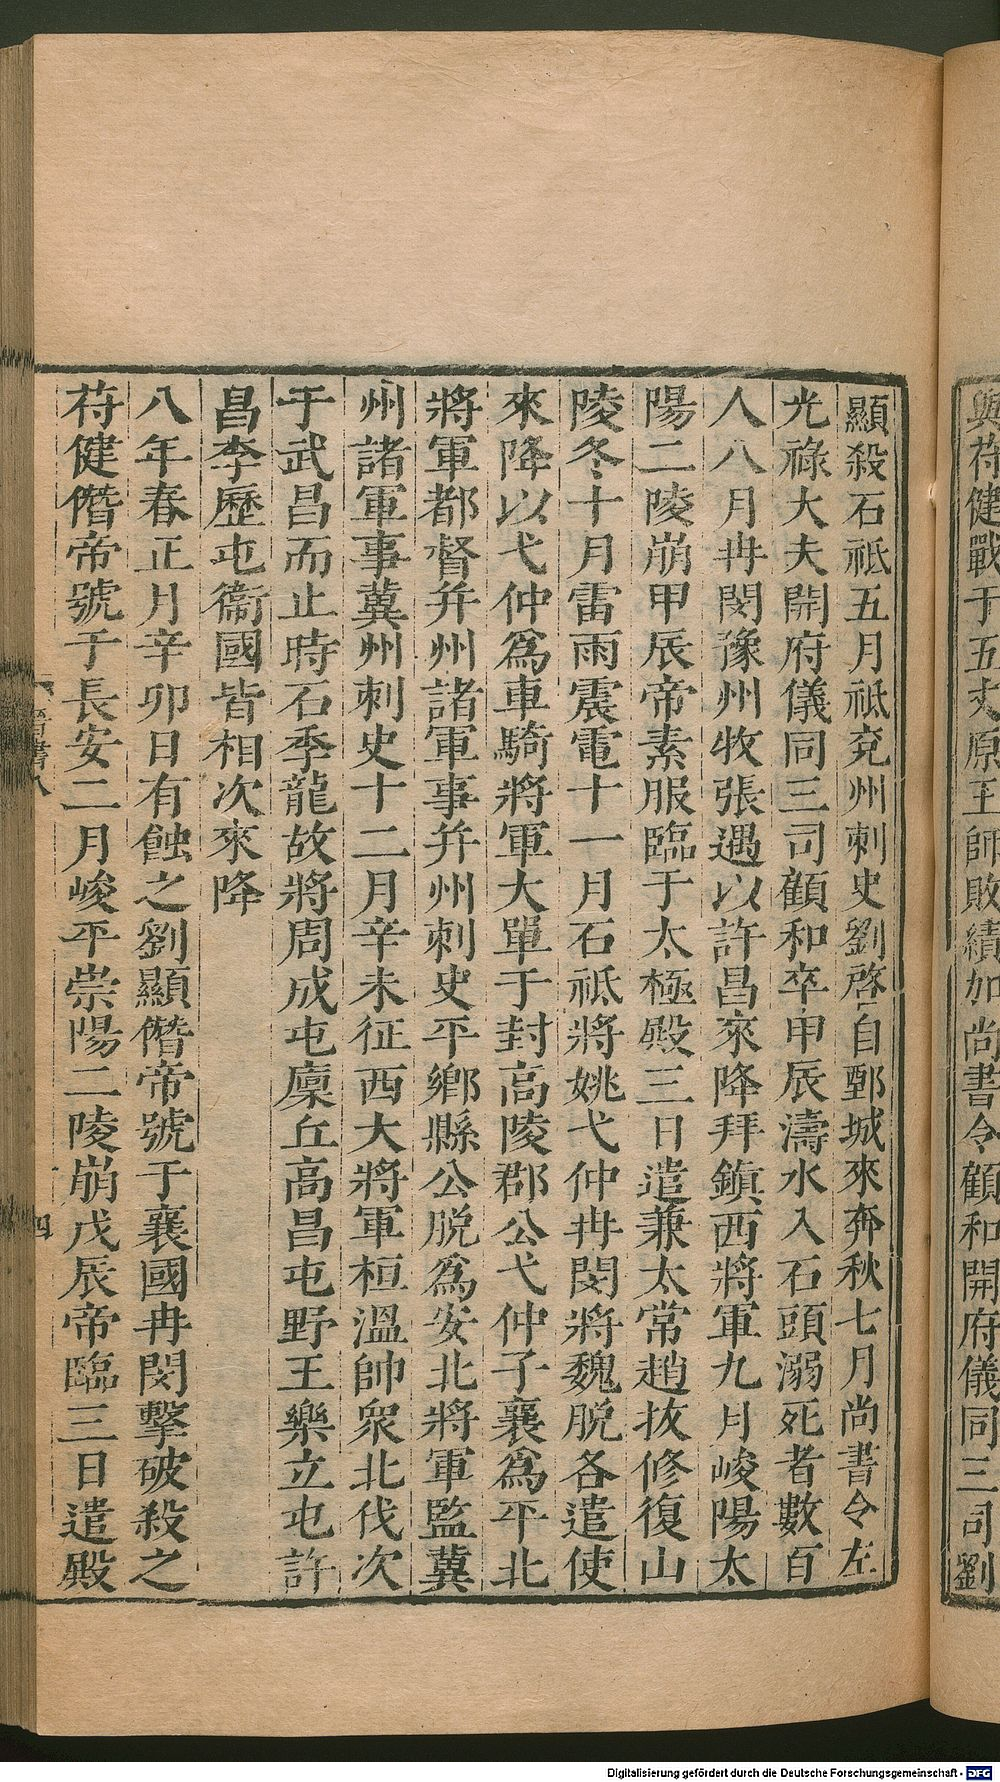 與苻健戰于五丈原王師敗績加尚書令顧和開府儀同三司劉
顯殺石祗五月祗兗州刺史劉啓自鄄城來奔秋七月尚書令左
光祿大夫開府儀同三司顧和卒甲辰濤水入石頭溺死者數百
人八月冉閔豫州牧張遇以許昌來降拜鎮西將軍九月峻陽太
陽二陵崩甲辰帝素服臨于太極殿三日遣兼太常趙抜修復山
陵冬十月雷雨震電十一月石祗將姚弋仲冉閔將魏脱各遣使
來降以弋仲爲車騎將軍大單于封高陵郡公弋仲子襄爲平北
將軍都督并州諸軍事并州刺史平鄉縣公脱爲安北將軍監冀
州諸軍事冀州刺史十二月辛未征西大將軍桓溫帥衆北伐次
于武昌而止時石季龍故將周成屯廩丘高昌屯野王樂立屯許
昌李歷屯衞國皆相次來降
八年春正月辛卯日有蝕之劉顯僭帝號于襄國冉閔擊破殺之
苻健僭帝號于長安二月峻平崇陽二陵崩戊辰帝臨三日遣殿
晉書八
四
Digitalisierung gefördert durch die Deutsche Forschungsgemeinschaft - DFG